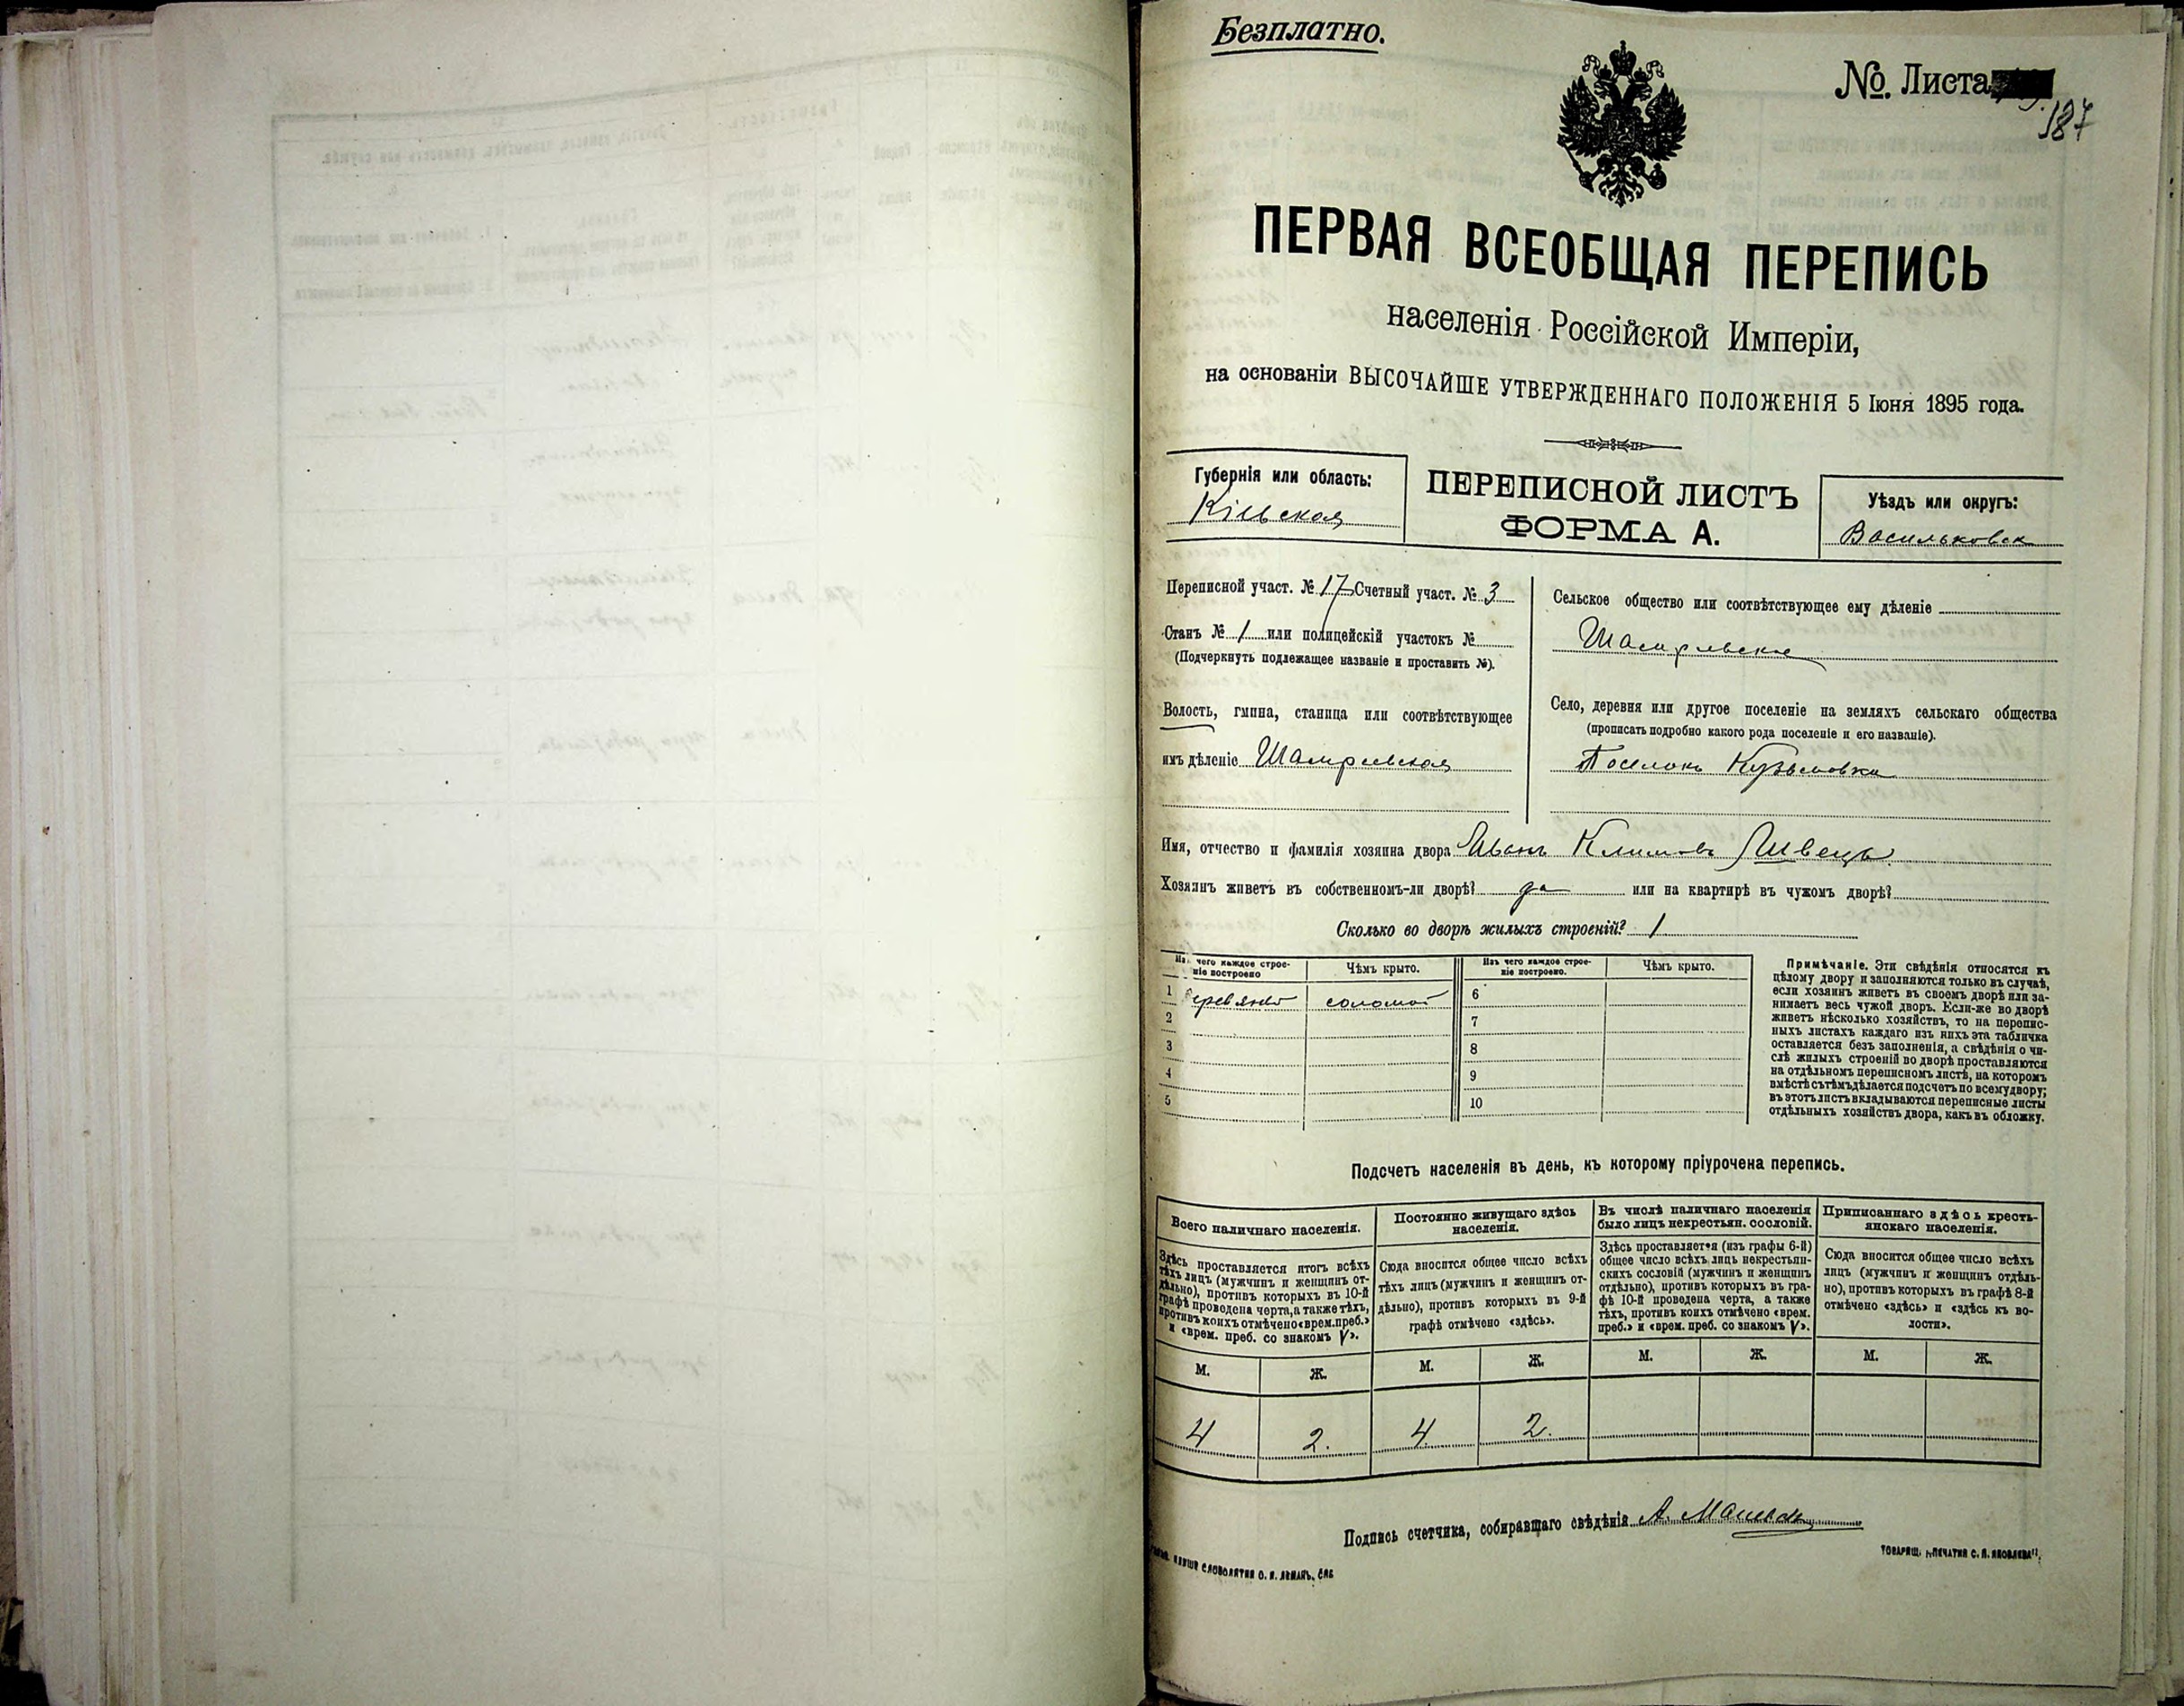 Безплатно.
№. Листа
187
ПЕРВАЯ ВСЕОБЩАЯ ПЕРЕПИСЬ
населенія Россійской Имперіи,
на основаніи ВЫСОЧАЙШЕ УТВЕРЖДЕННАГО ПОЛОЖЕНІЯ 5 Іюня 1895 года.
Губернія или область:
Кіевская
ПЕРЕПИСНОЙ ЛИСТЪ
ФОРМА А.
Уѣздъ или округъ:
Васильковск
Переписной участ. № 17 Счетный участ. № 3
Станъ № 1 или полицейскій участокъ №
(Подчеркнуть подлежащее названіе и проставить №).
Волость, гмина, станица или соотвѣтствующее
имъ дѣленіе Шамраевская
Сельское общество или соотвѣтствующее ему дѣленіе
Шамраевское
Село, деревня или другое поселеніе на земляхъ сельскаго общества
(прописать подробно какого рода поселеніе и его названіе).
Поселокъ Кузьмовка
Имя, отчество и фамилія хозяина двора Иванъ Климовъ Швецъ
Хозяинъ живетъ въ собственномъ-ли дворѣ? да или на квартирѣ въ чужомъ дворѣ?
Сколько во дворѣ жилыхъ строеній? 1
чего каждое строе-
ніе построено
Чѣмъ крыто.
Изъ чего каждое строе-
ніе построено.
Чѣмъ крыто.
1 соломой 6
2 7
3 8
4 9
5 10
Примѣчаніе. Эти свѣдѣнія относятся къ
цѣлому двору и заполняются только въ случаѣ,
если хозяинъ живетъ въ своемъ дворѣ или за-
нимаетъ весь чужой дворъ. Если-же во дворѣ
живетъ нѣсколько хозяйствъ, то на перепис-
ныхъ листахъ каждаго изъ нихъ эта табличка
оставляется безъ заполненія, а свѣдѣнія о чи-
слѣ жилыхъ строеній во дворѣ проставляются
на отдѣльномъ переписномъ листѣ, на которомъ
вмѣстѣ съ тѣмъ дѣлается подсчетъ по всему двору;
въ этотъ листъ вкладываются переписные листы
отдѣльныхъ хозяйствъ двора, какъ въ обложку.
Подсчетъ населенія въ день, къ которому пріурочена перепись.
Всего наличнаго населенія.
Здѣсь проставляется итогъ всѣхъ
тѣхъ лицъ (мужчинъ и женщинъ от-
дѣльно), противъ которыхъ въ 10-й
графѣ проведена черта, а также тѣхъ,
противъ коихъ отмѣчено «врем. преб.»
и «врем. преб. со знакомъ V».
Постоянно живущаго здѣсь
населенія.
Сюда вносится общее число всѣхъ
тѣхъ лицъ (мужчинъ и женщинъ от-
дѣльно), противъ которыхъ въ 9-й
графѣ отмѣчено «здѣсь».
Въ числѣ наличнаго населенія
было лицъ некрестьян. сословій.
Здѣсь проставляется (изъ графы 6-й)
общее число всѣхъ лицъ некрестьян-
скихъ сословій (мужчинъ и женщинъ
отдѣльно), противъ которыхъ въ гра-
фѣ 10-й проведена черта, а также
тѣхъ, противъ коихъ отмѣчено «врем.
преб.» и «врем. преб. со знакомъ V».
Приписаннаго здѣсь кресть-
янскаго населенія.
Сюда вносится общее число всѣхъ
лицъ (мужчинъ и женщинъ отдѣль-
но), противъ которыхъ въ графѣ 8-й
отмѣчено «здѣсь» и «здѣсь къ во-
лости».
М. Ж. М. Ж. М. Ж. М. Ж.
4 2. 4 2.
Подпись счетчика, собиравшаго свѣдѣнія А.
СЛОВОЛИТНИ О. И. ЛЕМАНЪ, СПБ
ТОВАРИЩ. „ПЕЧАТНЯ С. П. ЯКОВЛЕВА“.